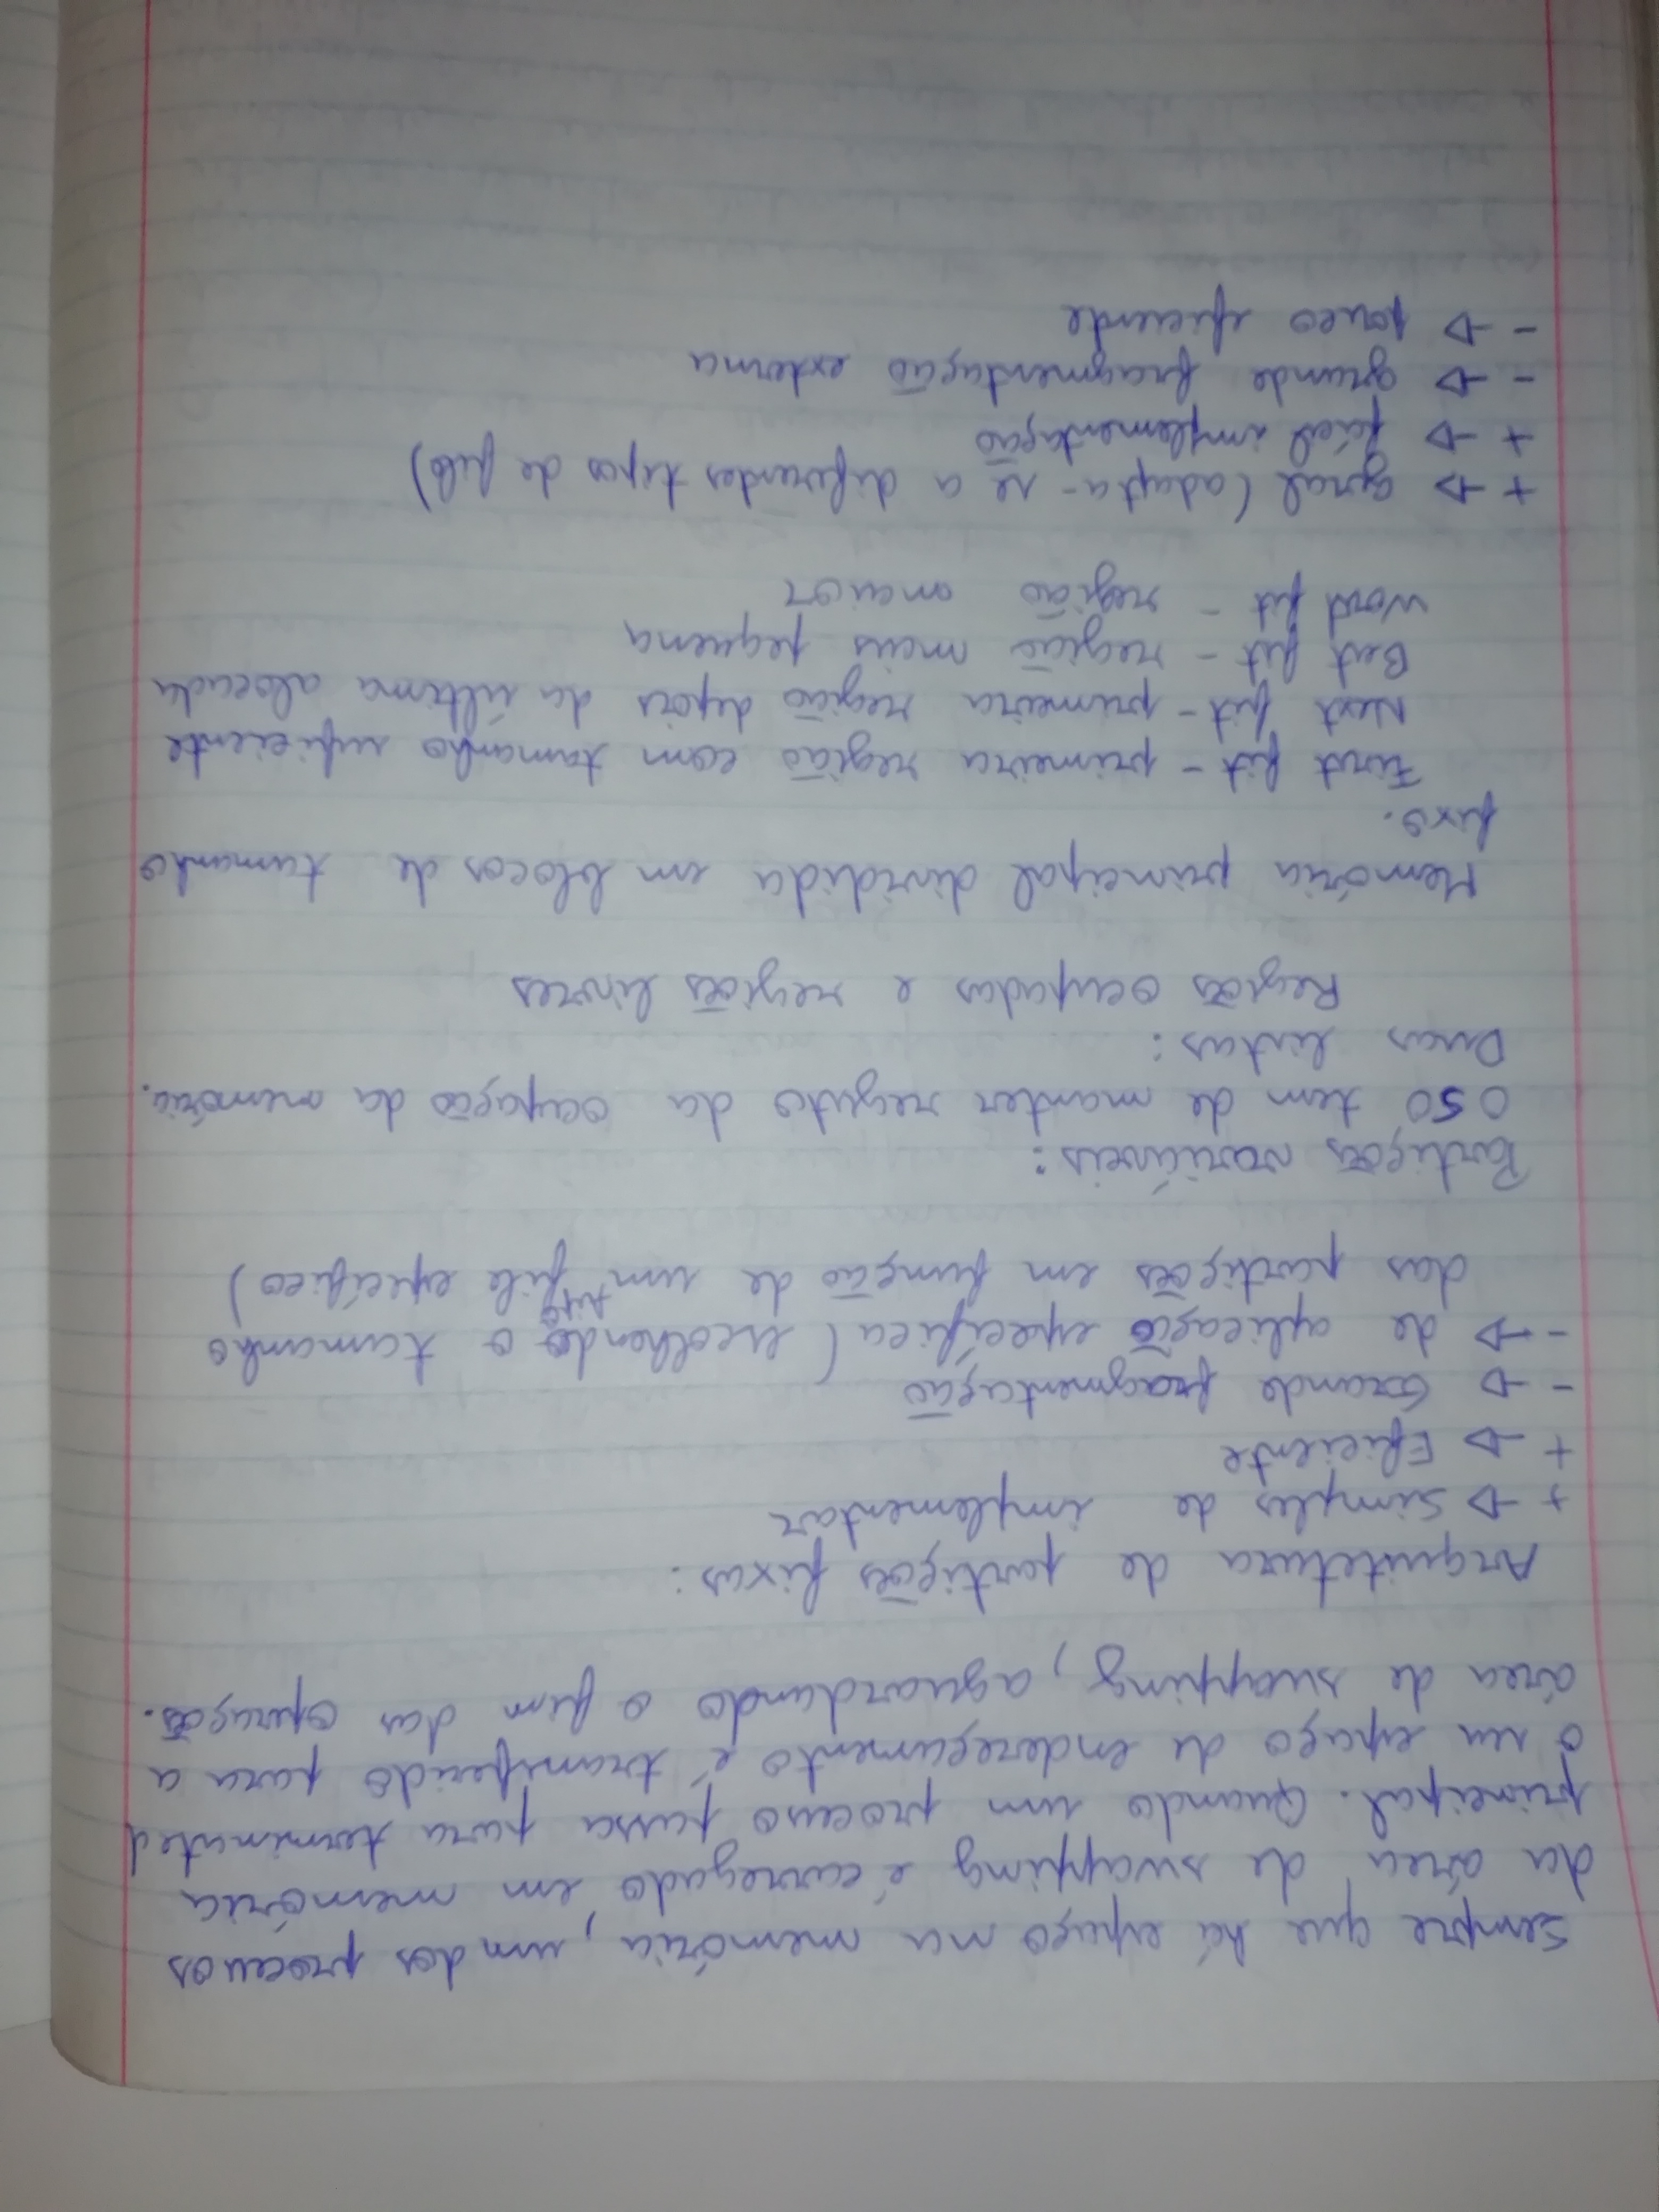 Sempre que há espaço na memória, um dos processos
da área de swapping é carregado em memória
principal. Quando um processo passa para terminated
o seu espaço de endereçamento é transferido para a
área de swapping, aguardando o fim das operações.
Arquitetura de partições fixas:
+ → Simples de implementar
+ → Eficiente
- → Grande fragmentação
- → de aplicação específica (escolhendo o tamanho
das partições em função de um tipo file específico)
Partições variáveis:
O SO tem de manter registo da ocupação da memória.
Duas listas:
Regiões ocupadas e regiões livres
Memória principal dividida em blocos de tamanho
fixo.
First fit - primeira região com tamanho suficiente
Next fit - primeira região depois da última alocada
Best fit - região mais pequena
Worst fit - região maior
+ → geral (adapta-se a diferentes tipos de file)
+ → fácil implementação
- → grande fragmentação externa
- → pouco eficiente